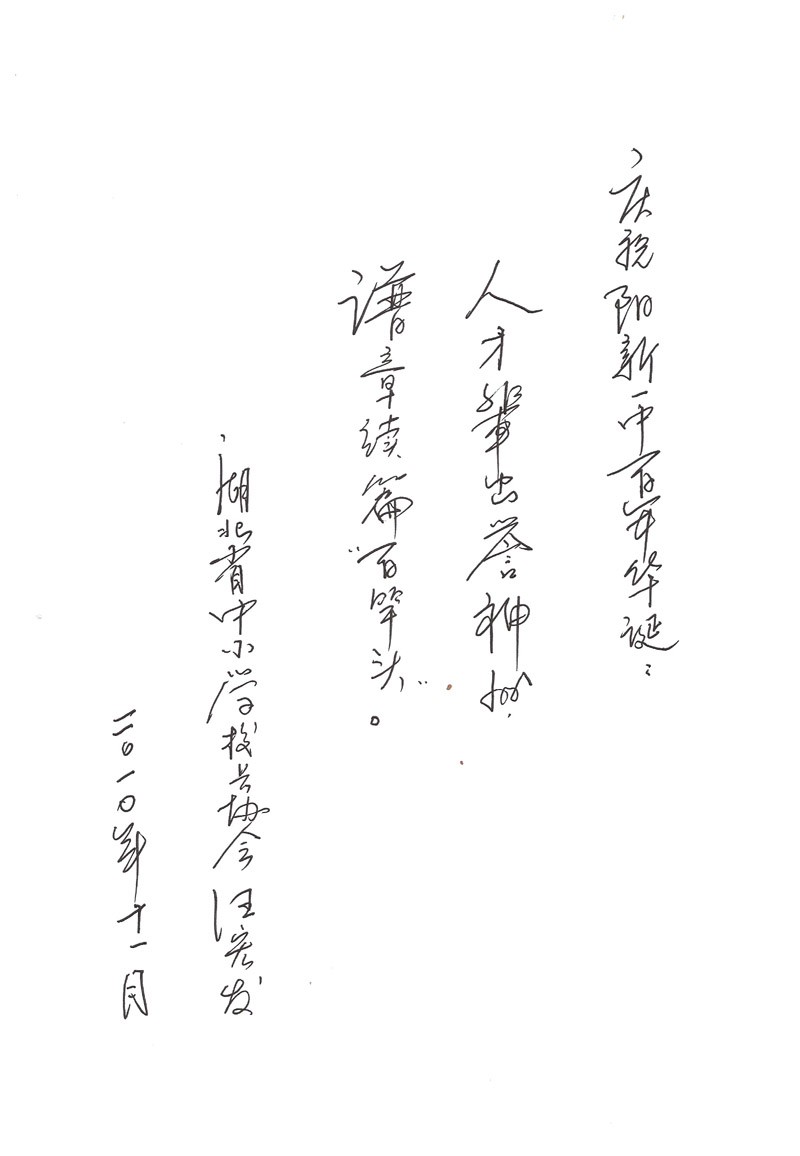 庆祝阳新一中百年华诞：
人才辈出誉神州，
谱章续篇“百竿头”。
湖北省中小学校长协会 汪宏发
二〇一〇年十一月